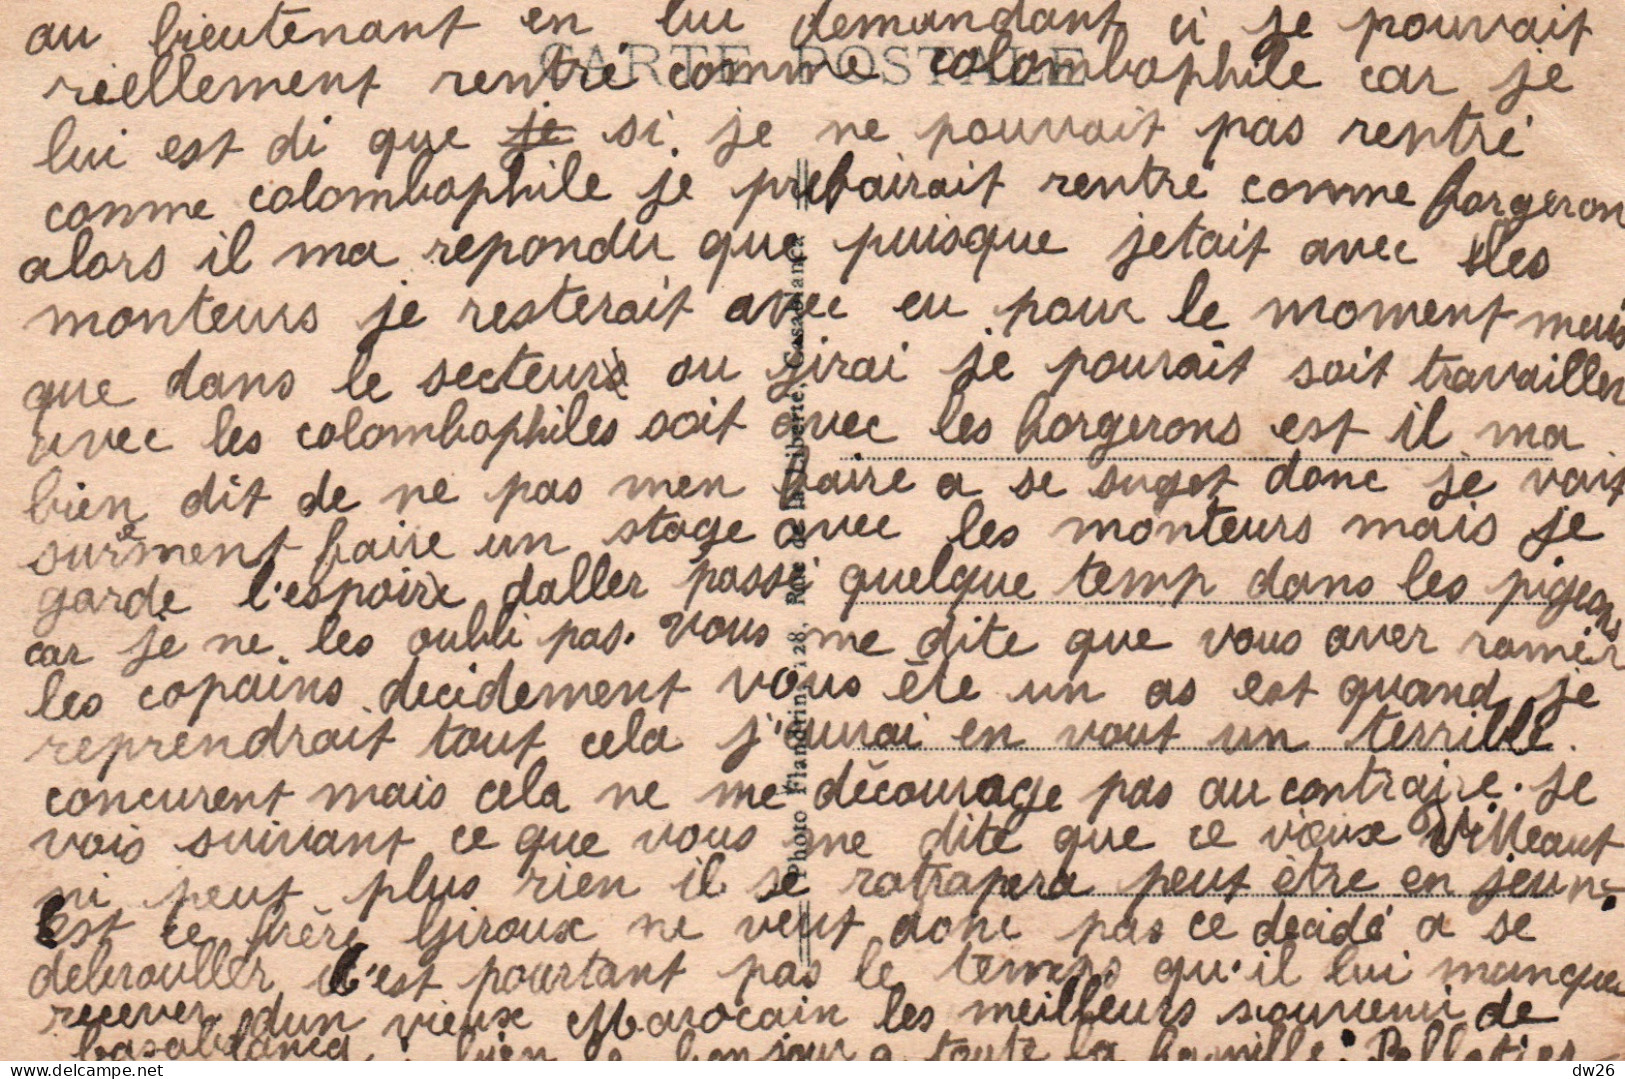 au lieutenant en lui demandant ci je pouvait
riellement rentré comme colombophile car je
lui est di que je si je ne pouvait pas rentré
comme colombophile je prefairait rentré comme forgeron
alors il ma repondu que puisque jetait avec les
monteurs je resterait avec eu pour le moment mais
que dans le secteur ou jirai je pourait soit travailler
avec les colombophiles soit avec les forgerons est il ma
bien dit de ne pas men faire a se suget donc je vait
surement faire un stage avec les monteurs mais je
garde l'espoire daller passé quelque temp dans les pigeons
car je ne les oubli pas. Vous me dite que vous aver ramer
les copains decidement vous ête un as est quand je
reprendrait tout cela j'aurai en vout un terrible
concurent mais cela ne me décourage pas au contraire. Je
vois suivant ce que vous me dite que ce vieux Villeaut
ni peut plus rien il se ratrapera peut être en jeune.
est ce frère Giroux ne veut donc pas ce decidé a se
debrouller c'est pourtant pas le temps qu'il lui manque
recever dun vieux Marocain les meilleurs souvenir de
Casablanca, bien le bonjour a toute la famille. Pelletier
CARTE POSTALE
Photo Flandrin, 128, Rue de la Liberté, Casablanca
dw26